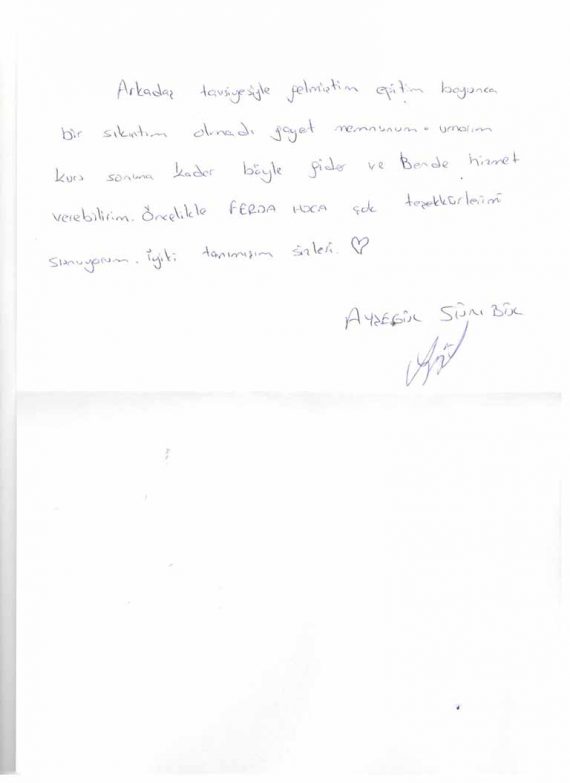 Arkadaş tavsiyesiyle gelmiştim eğitim boyunca
bir sıkıntım olmadı gayet memnunum. umarım
kurs sonuna kadar böyle gider ve Bende hizmet
verebilirim. Öncelikle FERDA HOCA çok teşekkürlerimi
sunuyorum. iyiki tanımışım sizleri. ♡
AYŞEGÜL SÜMBÜL